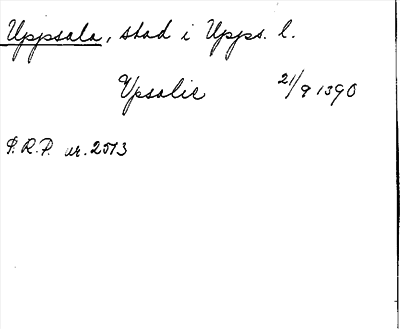 Uppsala, stad i Upps. l.
Ypsalie 21/9 1390
S.R.P. nr. 2513